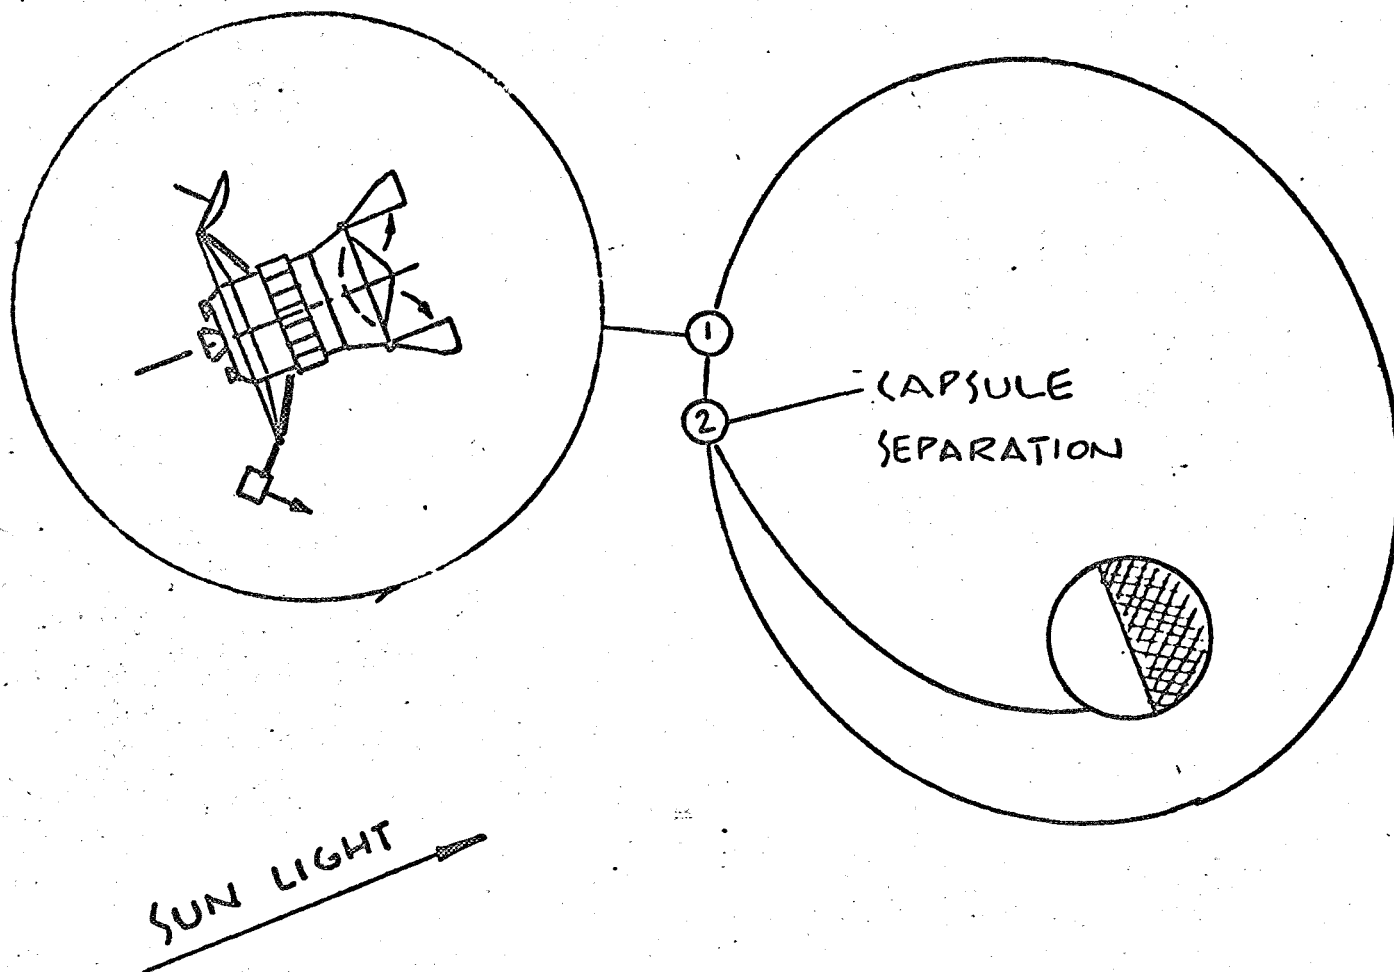 1
2
CAPSULE
SEPARATION
SUN LIGHT